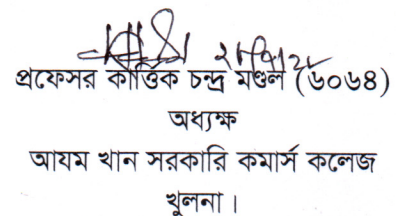 প্রফেসর কার্ত্তিক চন্দ্র মণ্ডল (৬০৬৪)
অধ্যক্ষ
আযম খান সরকারি কমার্স কলেজ
খুলনা।